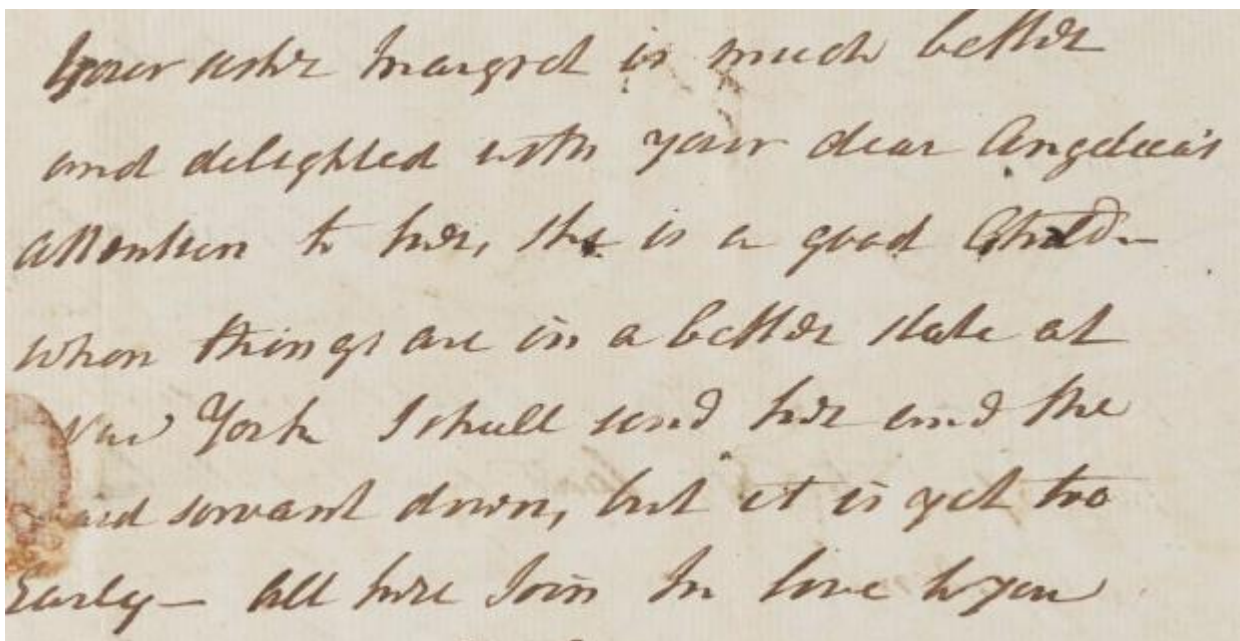 Your sister Margret is much better
and delighted with your dear Angelica's
Attention to her, she is a good Child–
when things are in a better state at
New York I shall send her and the
maid servant down, but it is yet too
Early – All here Join In love to you